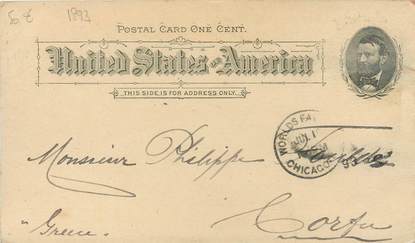 So € 1893
POSTAL CARD ONE CENT.
United States of America
THIS SIDE IS FOR ADDRESS ONLY.
WORLDS FA
JUN. 1
CHICAGO
93
Monsieur Philippe
"Grece"
Corfu